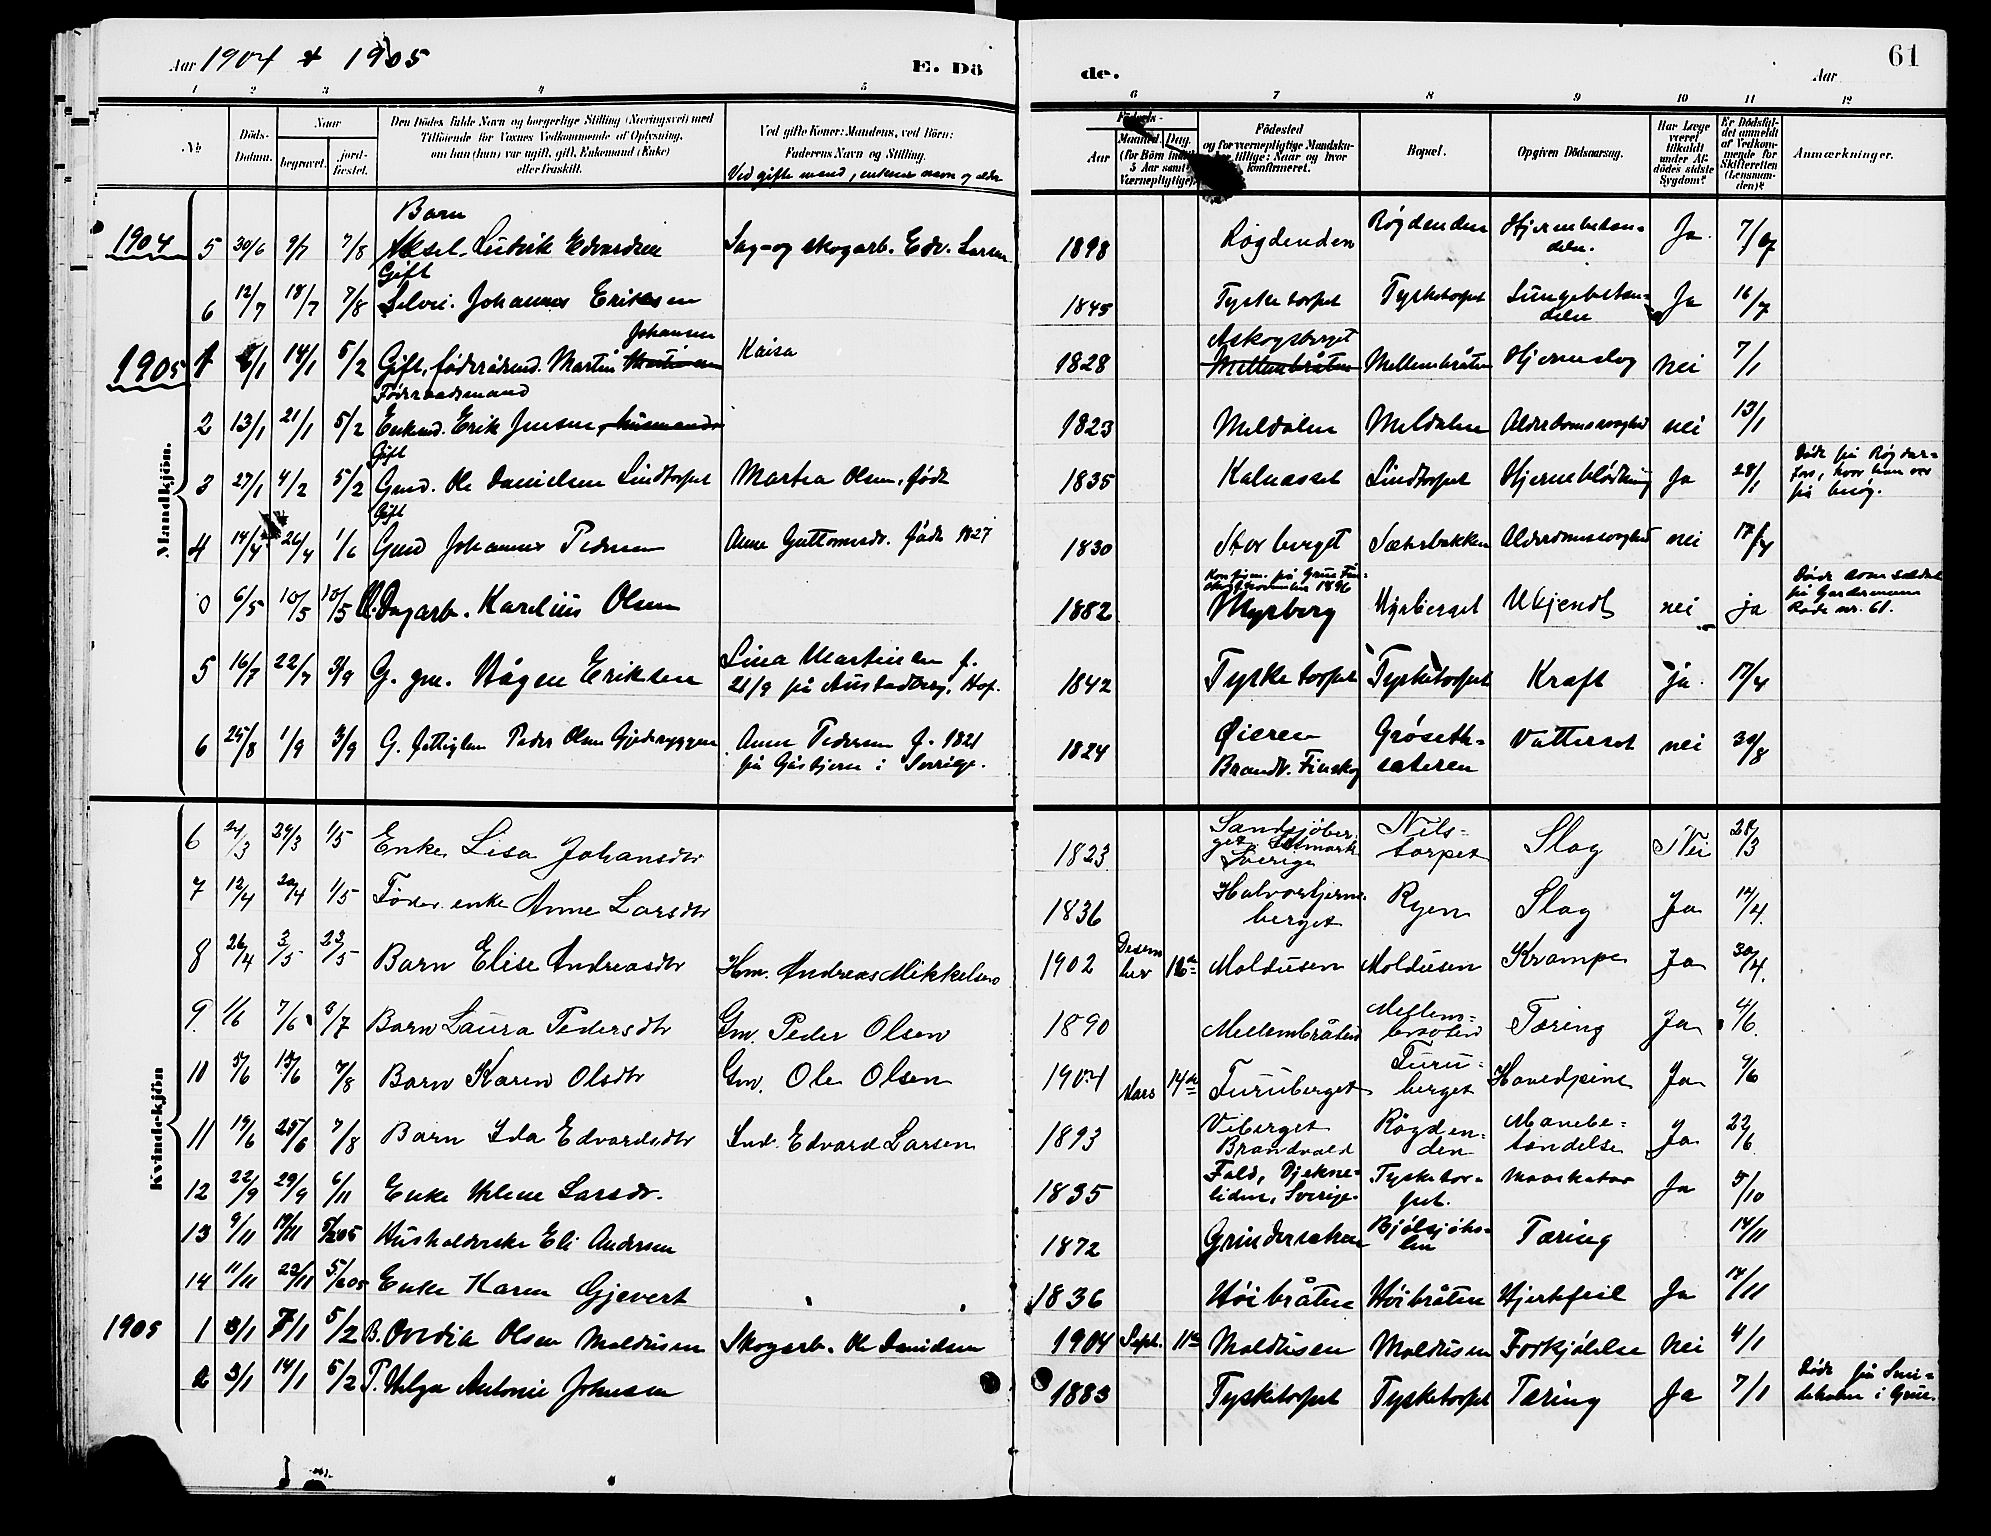 Aar 1904 & 1905 E. Dö de. Aar 61
1 2 3 4 5 6 7 8 9 10 11 12
No Döds-Datum. Naar begravet. jord-fæstet. Den Dödes fulde Navn og borgerlige Stilling (Næringsvei) med Tilföiende for Voxnes Vedkommende af Oplysning, om han (hun) var ugift, gift, Enkemand (Enke) eller fraskilt. Ved gifte Koner: Mandens, ved Börn: Faderens Navn og Stilling.
Ved gifte mænd, enkens navn og alder
Aar Maaned Dag Födested og for værnepligtige Mandskaber tillige: Naar og hvor konfirmeret. Bopæl. Opgiven Dödsaarsag. Har Læge været tilkaldt under Afdödes sidste Sygdom? Er Dödsfaldet anmeldt af Vedkommende for Skifteretten (Lensmanden)? Anmærkninger.
Mandkjön.
1904 5 30/6 9/7 7/8 Barn Aksel Ludvik Edvardsen Sag- og skogarb. Edv. Larsen 1898 Røgdenden Røgdenden Hjernebetændelse. Ja
6 12/7 18/7 7/8 Gift Selvei. Johannes Eriksen 1845 Tysketorpet Tysketorpet Lungebetændelse Ja 16/7
1905 1 14/1 5/2 Gift, föderådsmd. Martin Johansen Kaisa 1828 Askogsberget Mellembråten Hjerneslag nei 7/1
2 13/1 21/1 5/2 Föderaadsmand Enkemd. Erik Jensen, husmand 1823 Meldalen Meldalen Alderdomssvaghed nei 13/1
3 27/1 4/2 5/2 Gift Gmd. Ole Danielsen Lindtorpet Martea Olsen, født 1835 Kalnæsset Lindtorpet Hjerneblødning Ja 28/1 Døde på Røgdenfors, hvor han var på besøg.
4 14/4 26/4 1/6 Gift Gmd Johannes Pedersen Anne Guttormsdr. født 1827 1830 Storberget Sæterbakken Alderdomssvaghed nei 17/4
0 6/5 10/5 10/5 U. Dagarb. Karelius Olsen 1882 Konfirm. på Grue Finskog 1896 Myrberg Myrberget Ukjendt nei ja Døde som soldat på Gardermoen Rode nr. 61.
5 16/7 22/7 3/9 G. gm. Hågen Eriksen Lina Martinsen f. 21/9 på Austadberg, Hof. 1842 Tysketorpet Tysketorpet Kræft ja 17/7
6 25/8 1/9 3/9 G. fattiglem Peder Olsen Gjedryggen Anne Pedersen f. 1821 på Gåsbjern i Sverige. 1824 Øieren Brandv. Finskog Grøsethsæteren Vattersot nei 30/8
Kvindekjön
6 24/3 29/3 1/5 Enke Lisa Johansdtr 1823 Sandsjøberget Østmark Sverige Nilstorpet Slag Nei 28/3
7 12/4 20/4 1/5 Föder. enke Anne Larsdtr 1836 Halvorstjernberget Ryen Slag Ja 14/4.
8 26/4 3/5 23/5 Barn Elise Andreasdtr Hm. Andreas Mikkelsen 1902 Desember 16de Moldusen Moldusen Krampe Ja 30/4.
9 1/6 7/6 3/7 Barn Laura Pedersdtr Gm. Peder Olsen 1890 Mellembråten Mellembraaten Tæring Ja 4/6.
10 5/6 13/6 7/8 Barn Karen Olsdtr Gm. Ole Olsen 1904 Mars 14de Furuberget Furuberget Hovedpine Ja 9/6
11 19/6 25/6 7/8 Barn Ida Edvardsdtr Ind. Edvard Larsen 1893 Viberget Brandvold Røgdenden Mavebetændelse Ja 22/6
12 22/9 29/9 6/11 Enke Helene Larsdr. 1835 Fald, Djeknelidens, Sverige Tysketorpet. Maaskatar Ja 5/10
13 9/11 19/11 5/2 05 Husholderske Eli Andersen 1872 Grindersæteren Bjølsjøholen Tæring 14/11
14 11/11 22/11 5/2 05 Enke Karen Gjevert 1836 Høibråten Høibråten Hjertefeil Ja 14/11
1905 1 3/1 7/1 5/2 B. Ovedia Olsen Moldusen Skogarb. Ole Danielsen 1904 Sept. 11te Moldusen Moldusen Forkjølelse Nei 4/1
2 3/1 14/1 5/2 P. Helga Antonie Johnsen 1883 Tysketorpet Tysketorpet Tæring Ja 7/1 Døde på Smedeholen i Grue.